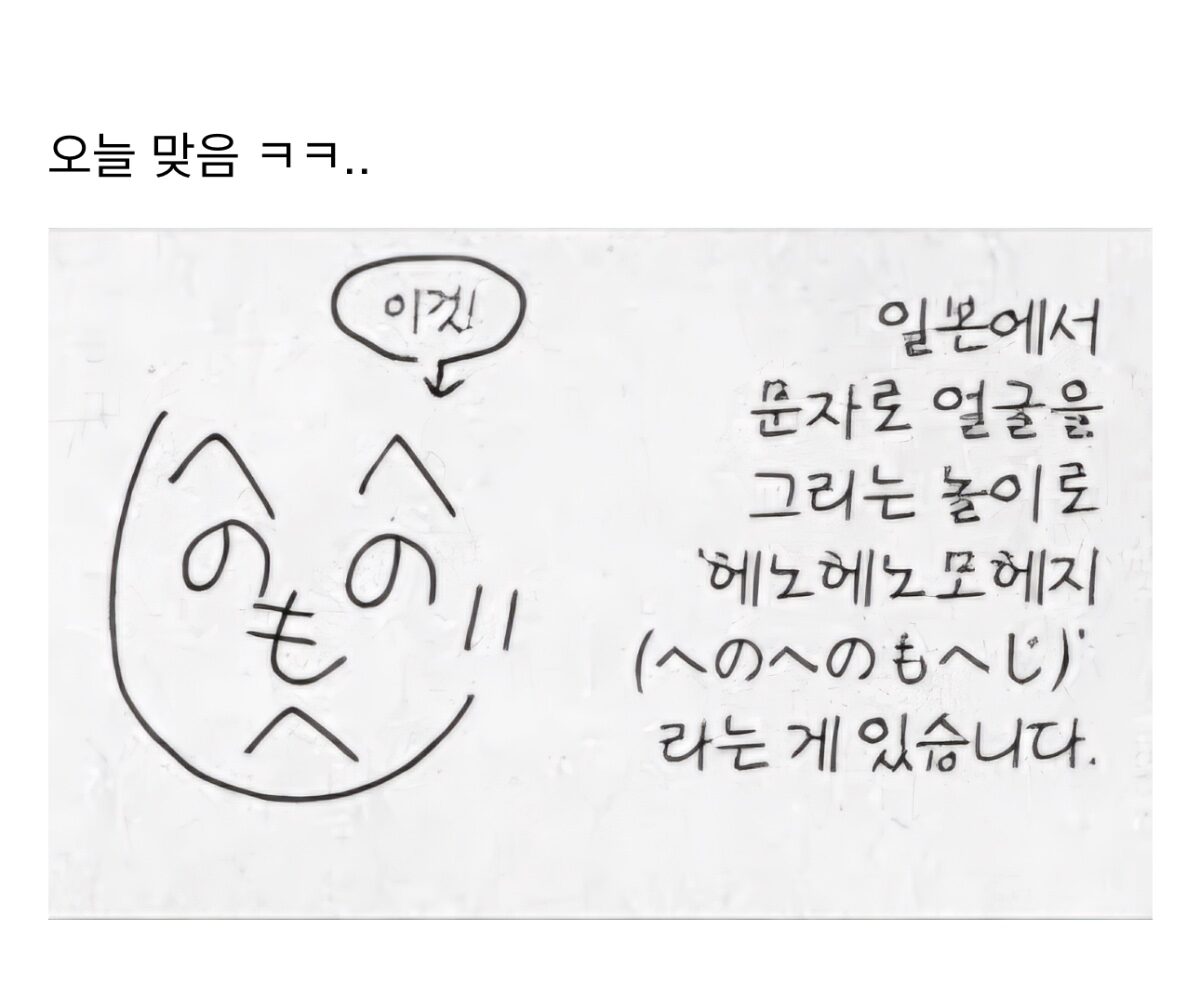 오늘 맞음 ㅋㅋ..
이것!
へ へ
の の
も
へ
일본에서
문자로 얼굴을
그리는 놀이로
'헤노헤노모헤지
(へのへのもへじ)'
라는 게 있습니다.